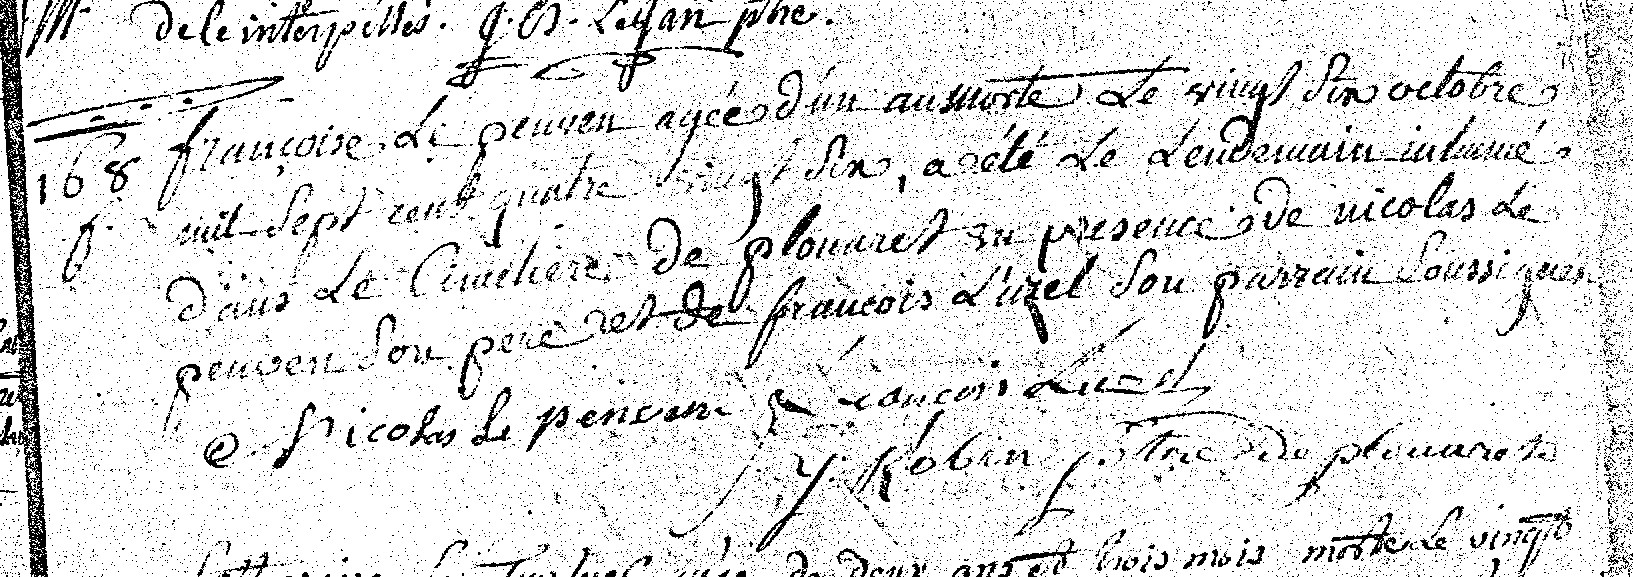 de le interpellés. J. B. Le Jan ptre.
168 françoise Le penven agée d'un ans morte Le vingt Six octobre
f. mil Sept cent quatre vingt Six, a été Le Lendemain inhumé
dans Le Cimetiere de plouaret en presence de nicolas Le
penven Son pere et de françois L'uzel Son parrain Soussignes
Nicolas Le penven françois Luzel
y. Robin ptre de plouaret
Le age de deux ans et trois mois morte Le vingt